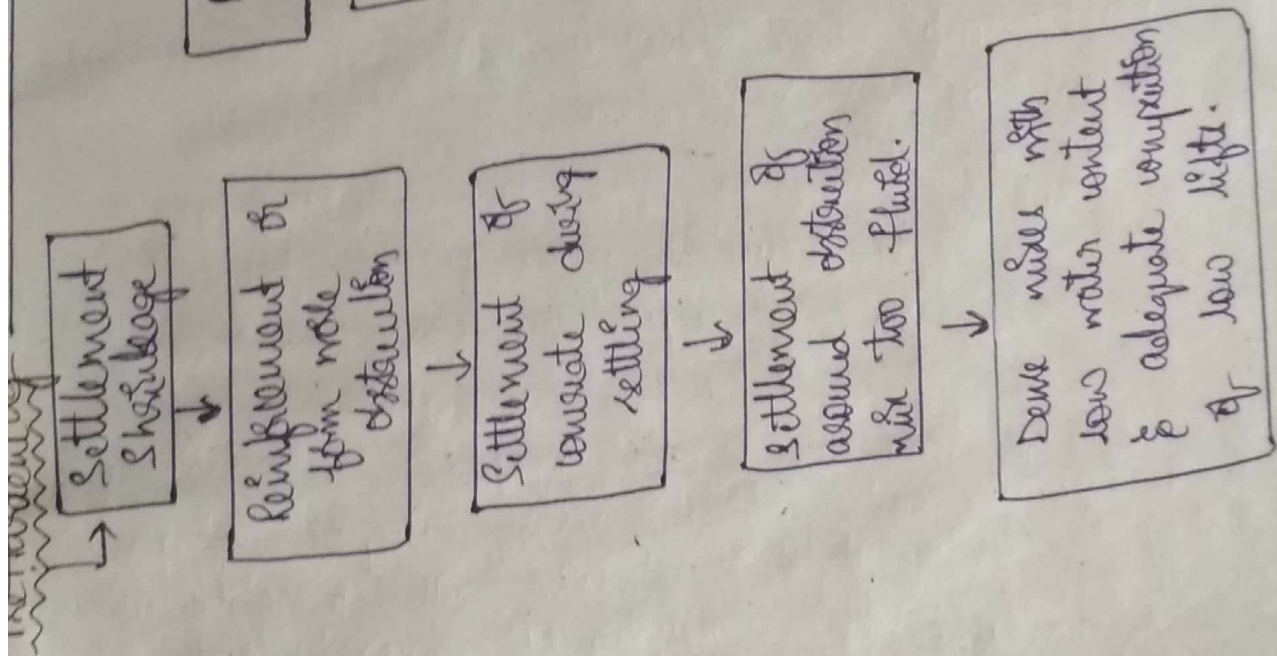 Settlement
Shrinkage
Reinforcement or
form work
obstruction
Settlement of
concrete during
settling
Settlement of
around obstruction
mix too fluid.
Dense mixes with
low water content
& adequate compaction
of low lifts.